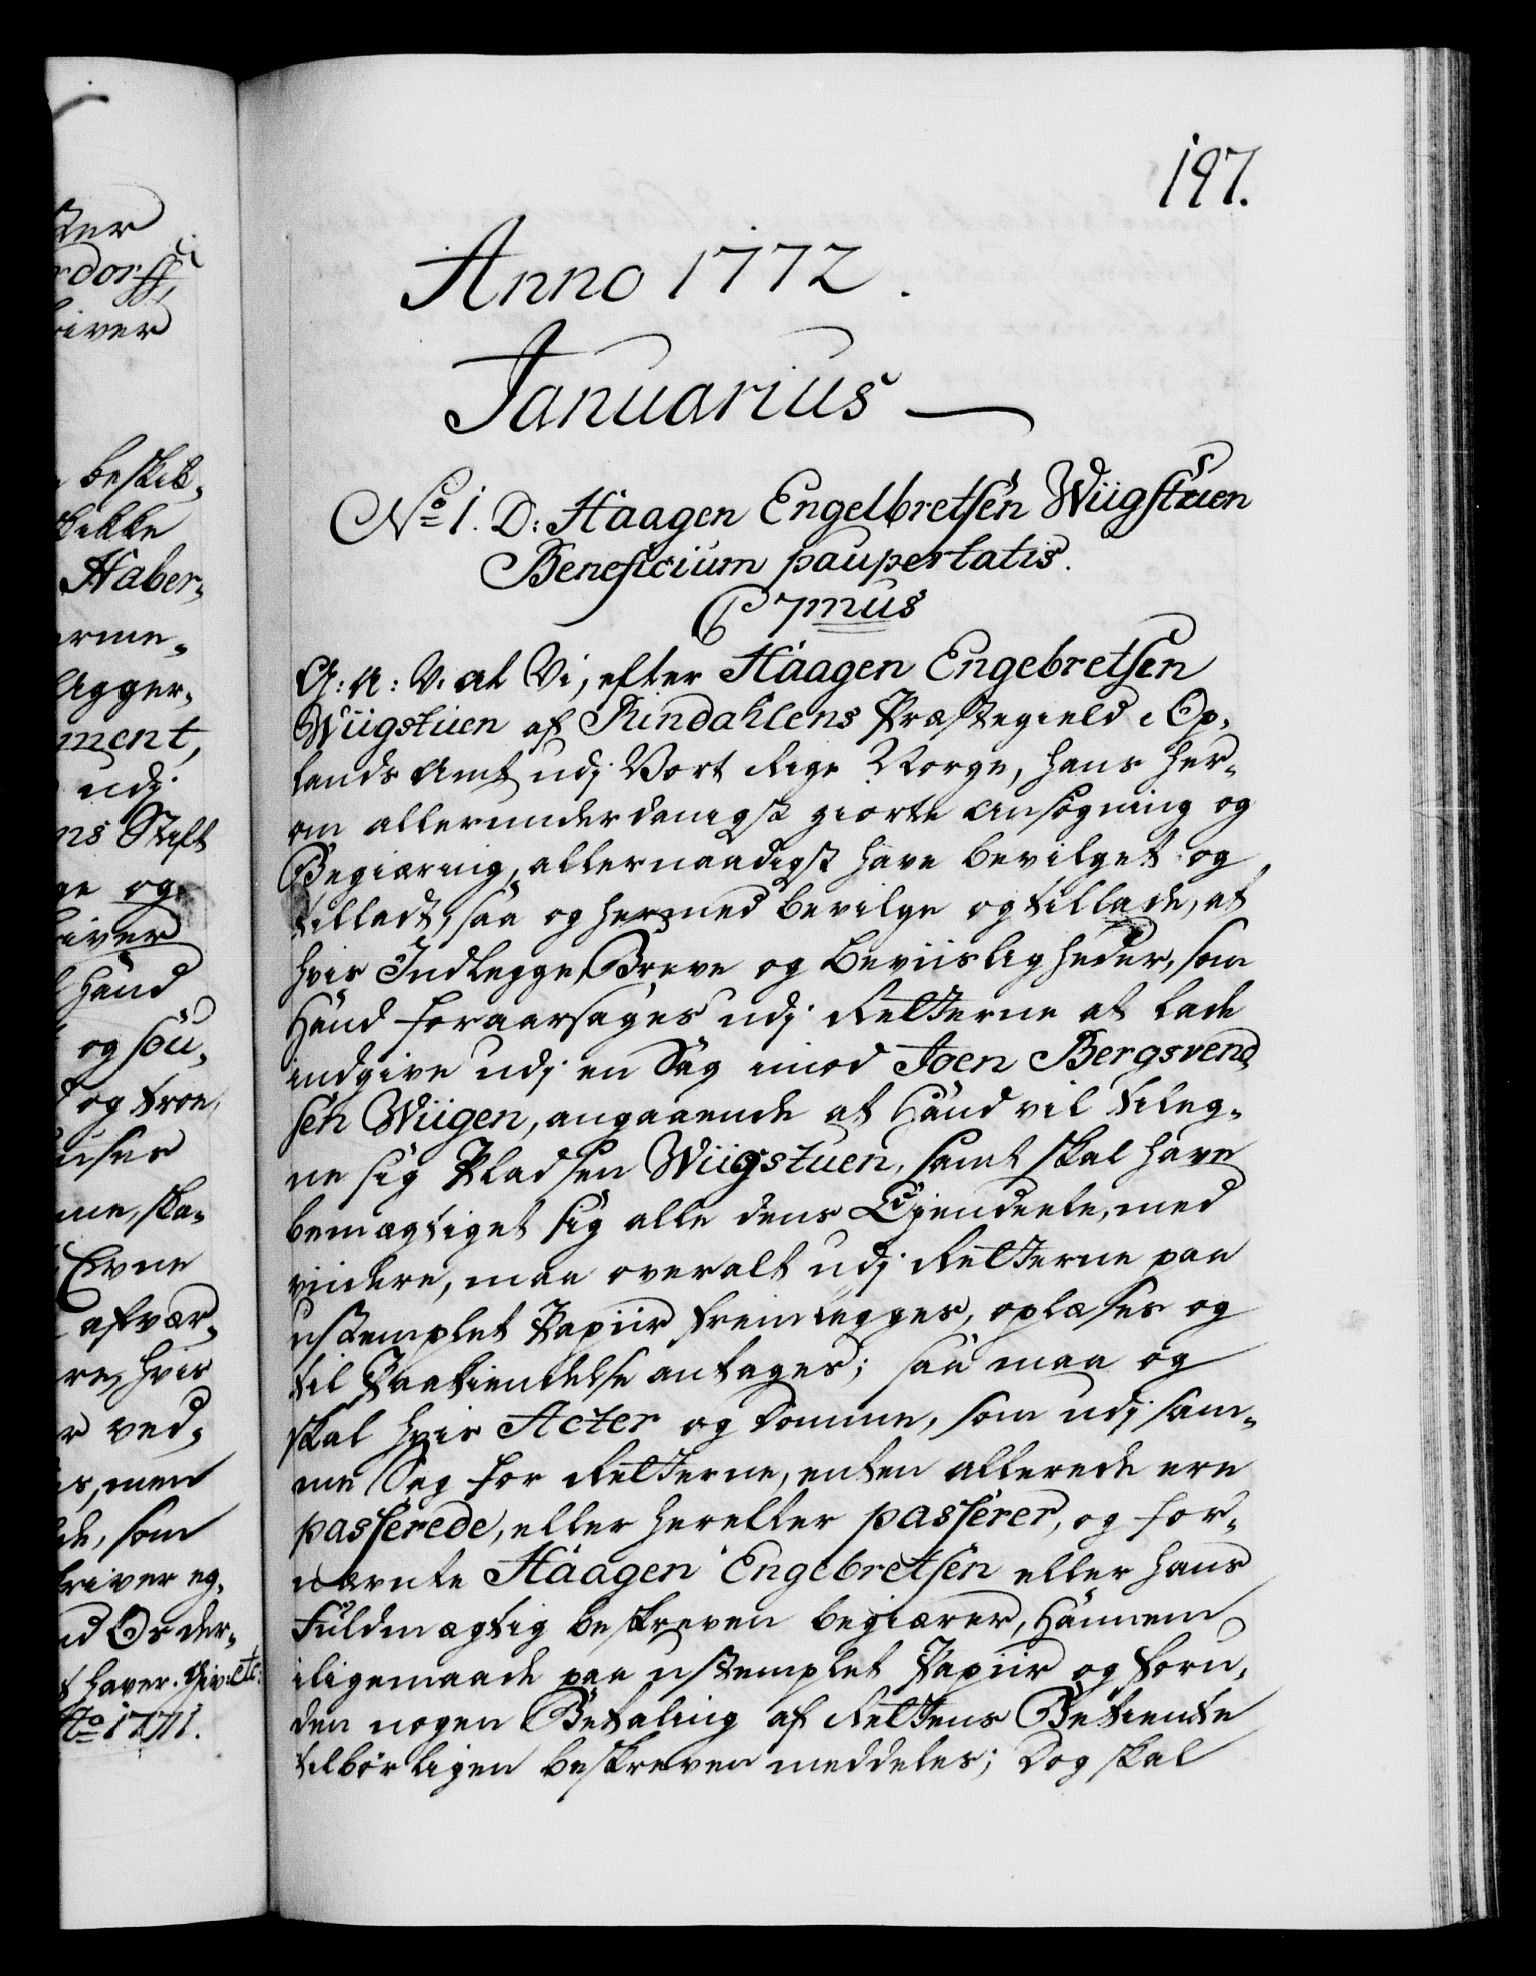 197.
Anno 1772.
Januarius —
No 1. D: Haagen Engelbretsen Wiigstuen
Beneficium paupertatis.
C 7mus
G: A: V. at Vi, efter Haagen Engebretsen
Wiigstuen af Rindahlens Præstegield i Op-
lands Amt udj Vort Rige Norge, hans her-
om allerunderdanigst giorte Ansøgning og
Begiæring, allernaadigst have bevilget og
tilladt, saa og hermed bevilge og tillade, at
hvis Indlegge, Breve og Beviisligheder, som
Hand foraarsages udj Retterne at lade
indgive udj en Sag imod Joen Bergsvend-
sen Wiigen, angaaende at Hand vil tileg-
ne sig Pladsen Wiigstuen, samt skal have
bemægtiget sig alle dens Ejendeele, med
videre, maa overalt udj Retterne paa
ustemplet Papiir fremlegges, oplæses og
til Paakiendelse antages; saa maa og
skal hvis Acter og Domme, som udj sam-
me Sag for Retterne, enten allerede ere
passerede, eller herefter passerer, og for-
nævnte Haagen Engebretsen eller hans
Fuldmægtig beskreven begiærer, Hannem
iligemaade paa ustemplet Papiir og foru-
den nogen Betaling af Rettens Betiente
tilbørligen beskreven meddeles; Dog skal
rdorff,
river
beskik-
Haber-
erme-
Agger-
ment,
udj
ns Stift
ge og
river
Hand
og sou-
og troe,
me, ska-
Evne
afvær-
re, hvis
r ved-
s, men
de, som
kriver eg-
haver. Giv: etc:
1771.